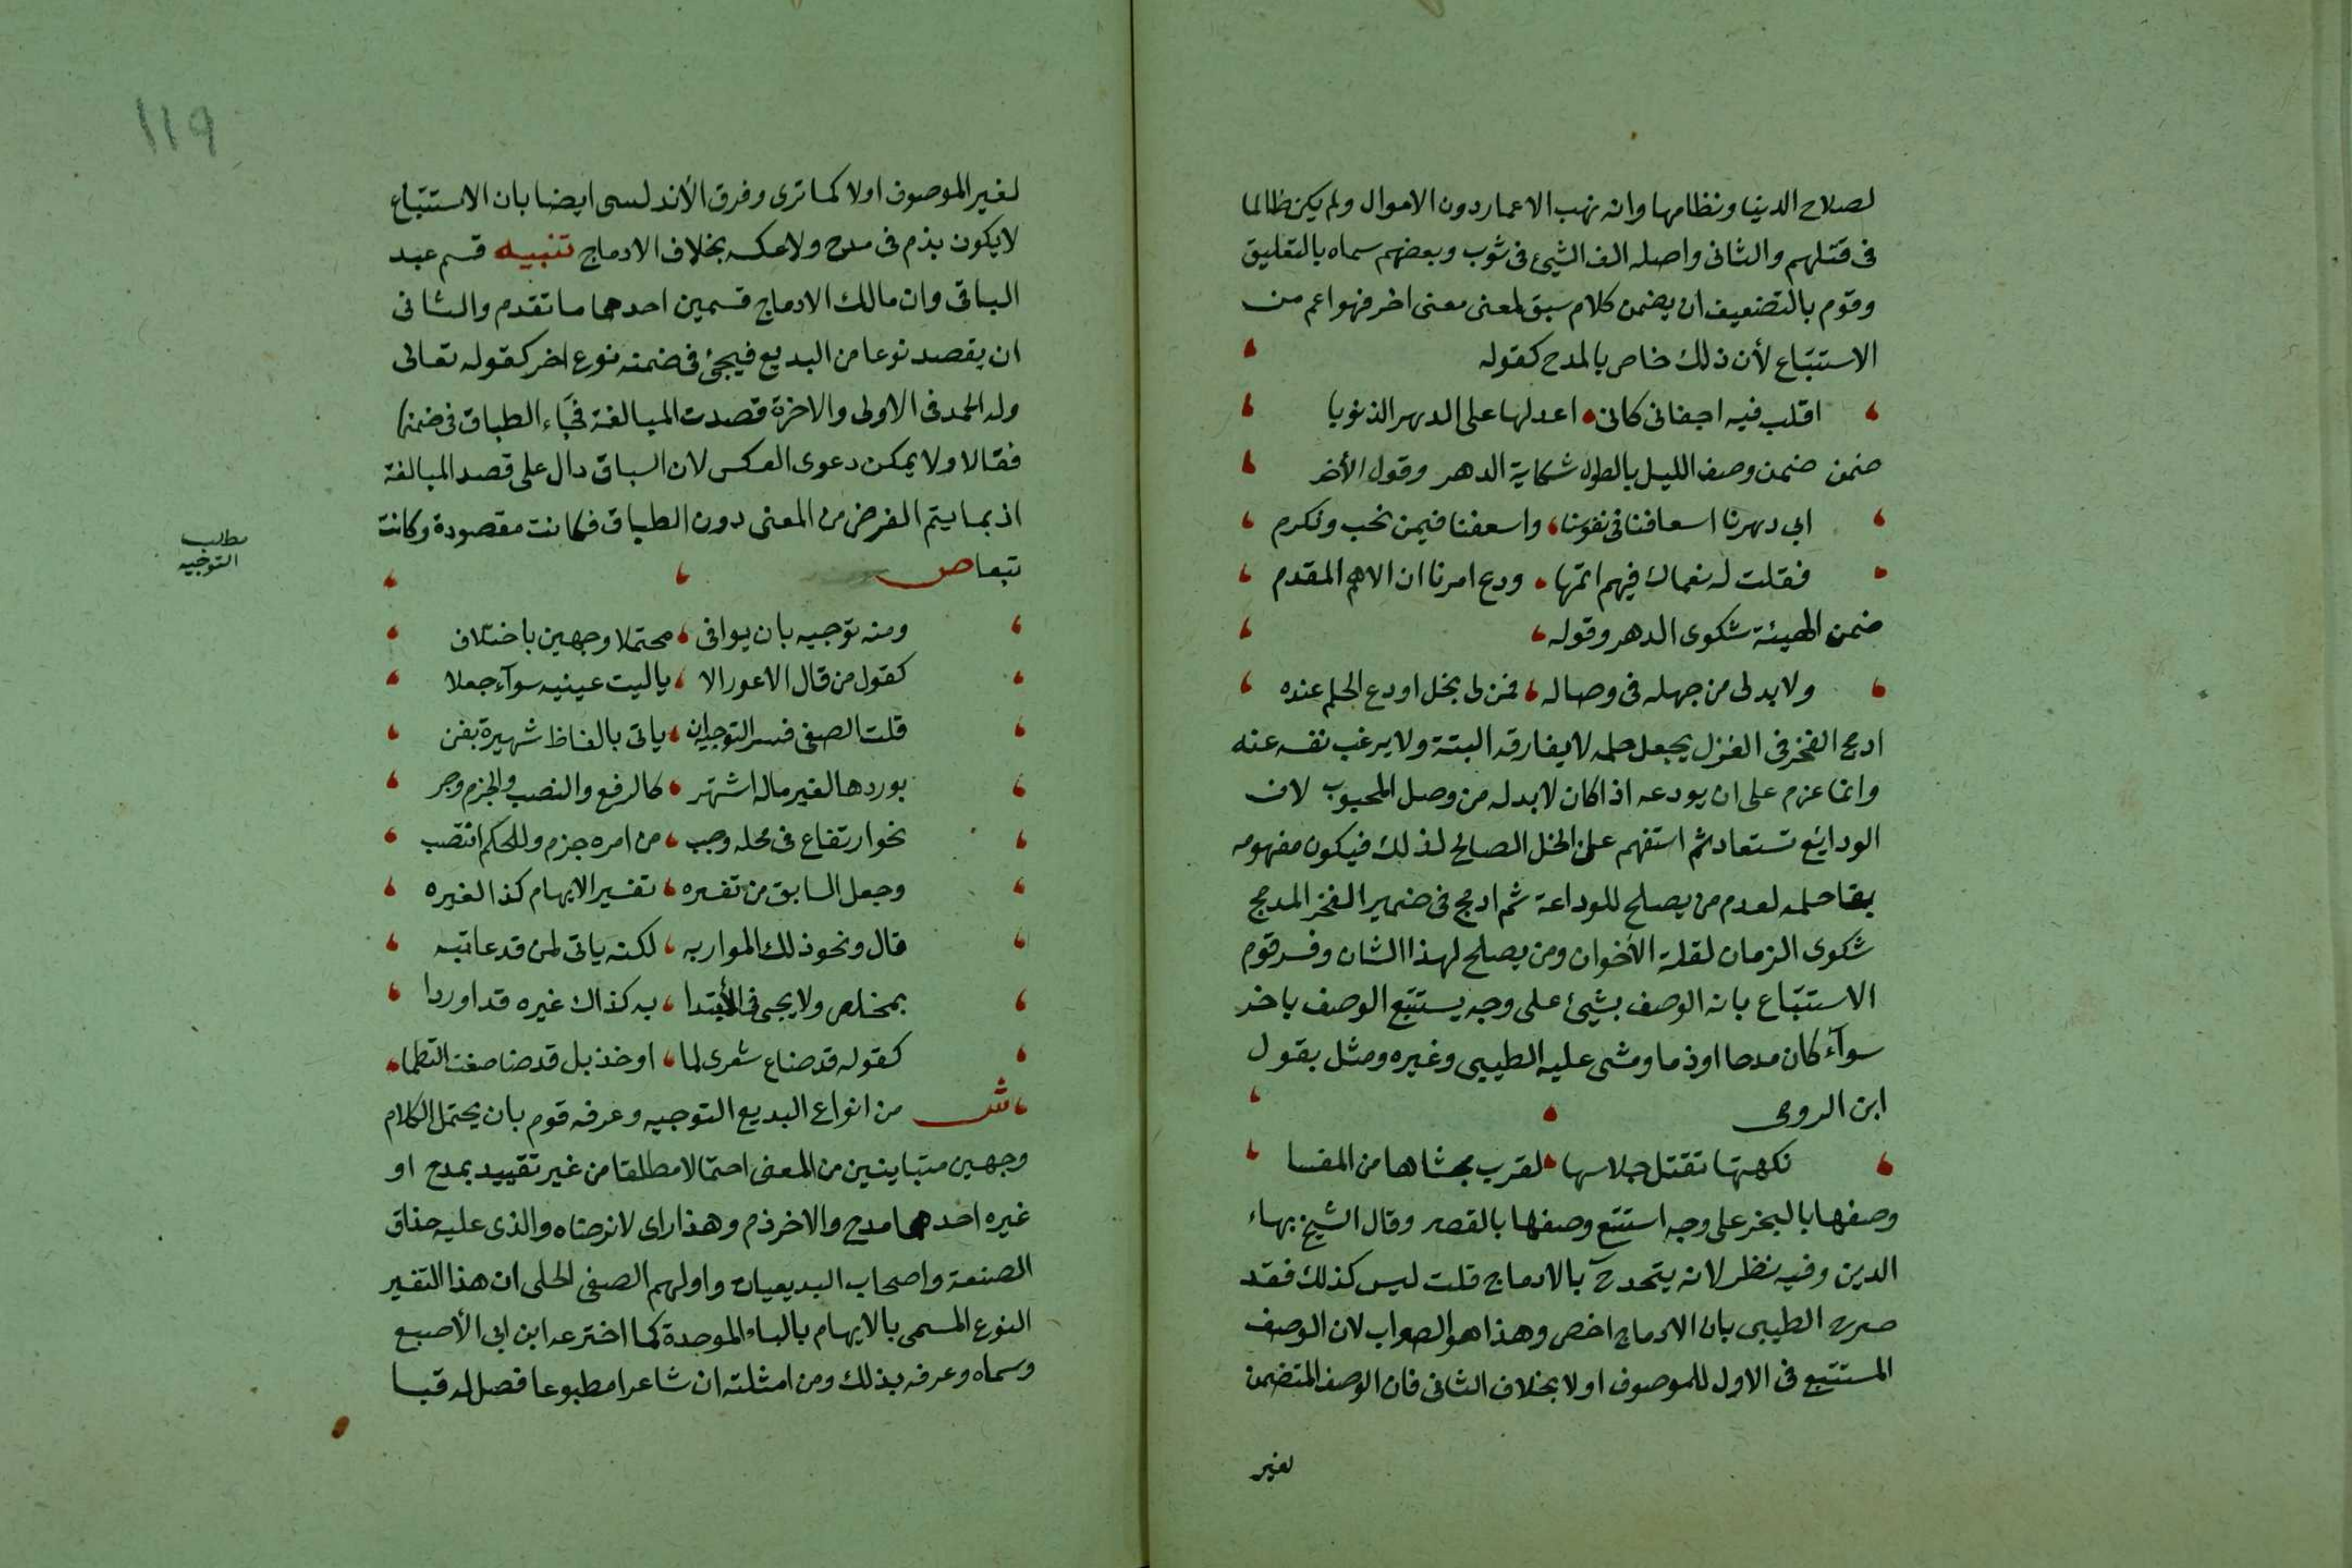 لصلاح الدينا ونظامها وانه نهب الاعمار دون الاموال ولم يكن ظالما
فى قتلهم والثانى واصله الف الشيئ فى ثوب وبعضهم سماه بالتعليق
وقوم بالتضعيف ان يضمن كلام سبق لمعنى معنى اخر فهو اعم من
الاستتباع لأن ذلك خاص بالمدح كقوله
اقلب فيه اجفانى كانى اعد لها على الدهر الذنوبا
ضمن ضمن وصف الليل بالطول شكاية الدهر وقول الأخر
ابى دهرنا اسعافنا فى نفوسنا واسعفنا فيمن نحب ونكرم
فقلت له نعماك فيهم اتمها ودع امرنا ان الاهم المقدم
ضمن الهيئة شكوى الدهر وقوله
ولا بد لى من جهله فى وصاله فمن لى بخل اودع الحلم عنده
ادمج الفخر فى الغزل يجعل حلمه لا يفارقه البتة ولا يرغب نفسه عنه
وانما عزم على ان يودعه اذا كان لا بد له من وصل المحبوب لان
الودايع تستعاد ثم استفهم على الخل الصالح لذلك فيكون مفهومه
بقا حلمه لعدم من يصلح للوداعة ثم ادمج فى ضمير الفخر المدمج
شكوى الزمان لقلة الأخوان ومن يصلح لهذا الشان وفسر قوم
الاستتباع بانه الوصف بشيئ على وجه يستتبع الوصف باخر
سوآء كان مدحا او ذما ومشى عليه الطيبى وغيره ومثل بقول
ابن الرومى
نكهتها تقتل جلاسها لقرب محشاها من المفسا
وصفها بالبخر على وجه استتبع وصفها بالقصر وقال الشيخ بهاء
الدين وفيه نظر لانه يتحد ح بالادماج قلت ليس كذلك فقد
صرح الطيبى بان الادماج اخص وهذا هو الصواب لان الوصف
المستتبع فى الاول للموصوف اولا بخلاف الثانى فان الوصف المتضمن
لغير
119
لغير الموصوف اولا كما ترى وفرق الأندلسى ايضا بان الاستتباع
لا يكون بذم فى مدح ولا عكسه بخلاف الادماج تنبيه قسم عبد
الباقى وابن مالك الادماج قسمين احدهما ما تقدم والثانى
ان يقصد نوعا من البديع فيجئ فى ضمنه نوع اخر كقوله تعالى
وله الحمد فى الاولى والاخرة قصدت المبالغة فجآء الطباق فى ضمنها
فقالا ولا يمكن دعوى العكس لان السباق دال على قصد المبالغة
اذ بما يتم الغرض من المعنى دون الطباق فكانت مقصودة وكانت
تبعا ص
مطلب
التوجيه
ومنه توجيه بان يوافى محتملا وجهين باختلاف
كقول من قال الاعور الا يا ليت عينيه سوآء جعلا
قلت الصفى فسر التوجيه ان ياتى بالفاظ شهيرة بفن
يوردها لغير ماله اشتهر كالرفع والنصب والجزم وجر
نحو ارتفاع فى محله وجب من امره جزم وللحكم انتصب
وجعل السابق من تفسيره تفسير الابهام كذا لغيره
قال ونحو ذلك المواربه لكنه ياتى لمن قد عاتبه
بمخلص ولا يجى فى الأبتدا به كذاك غيره قد اوردا
كقوله قد ضاع شعرى لما اوخذ بل قد ضا صفت التظما
ش من انواع البديع التوجيه وعرفه قوم بان يحتمل الكلام
وجهين متباينين من المعنى احتمالا مطلقا من غير تقييد بمدح او
غيره احدهما مدح والاخر ذم وهذا راى لا نرضاه والذى عليه حذاق
الصنعة واصحاب البديعيات واولهم الصفى الحلى ان هذا التفسير
النوع المسمى بالابهام بالباء الموحدة كما اخترعه ابن ابى الأصبع
وسماه وعرفه بذلك ومن امثلته ان شاعرا مطبوعا فصل له قبا